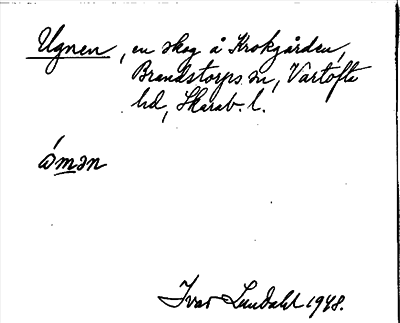 Ugnen, en skog å Krokgården,
Brandstorps sn, Vartofta
hd, Skarab. l.
Ivar Lundahl 1948.